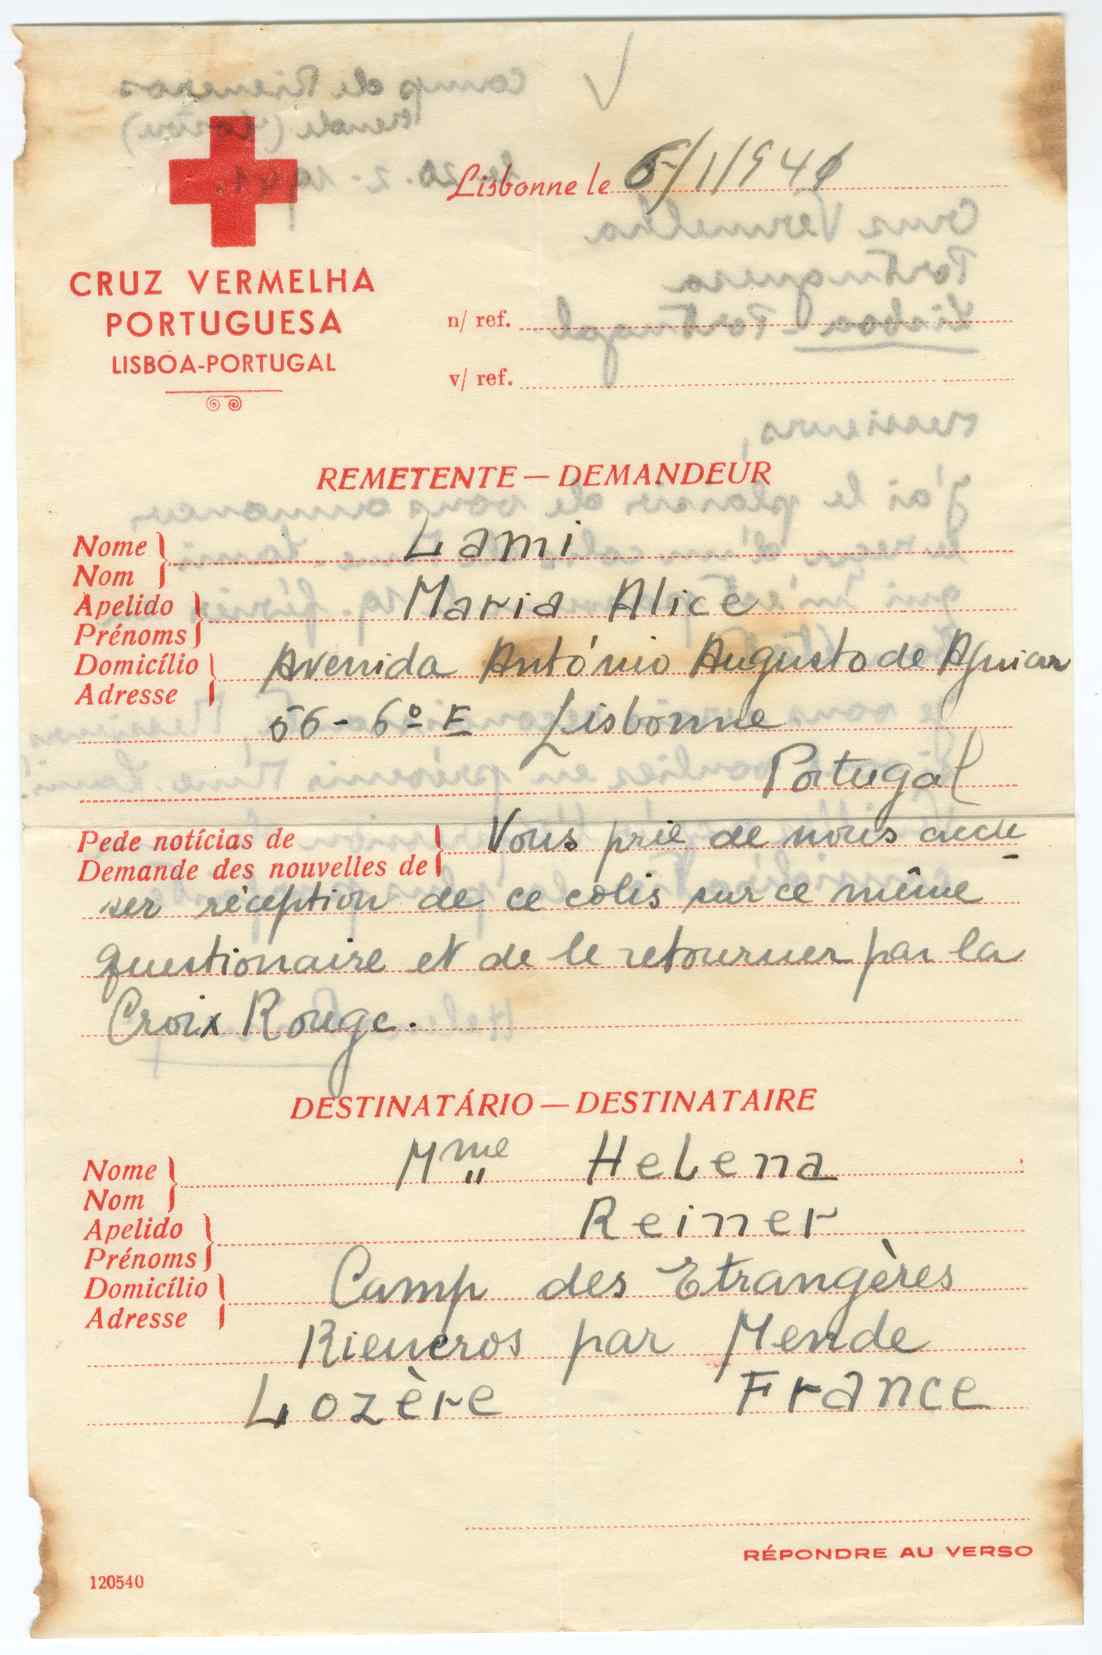 Lisbonne le 6/1/1941
CRUZ VERMELHA
PORTUGUESA
LISBÔA-PORTUGAL
n/ ref.
v/ ref.
REMETENTE — DEMANDEUR
Nome
Nom
Lami
Apelido
Prénoms
Maria Alice
Domicílio
Adresse
Avenida António Augusto de Aguiar
56 - 6º E Lisbonne
Portugal
Pede notícias de
Demande des nouvelles de
Vous prie de nous accu-
ser réception de ce colis sur ce même
questionaire et de le retourner par la
Croix Rouge.
DESTINATÁRIO — DESTINATAIRE
Nome
Nom
Mme Helena
Apelido
Prénoms
Reiner
Domicílio
Adresse
Camp des Etrangères
Rieucros par Mende
Lozère France
RÉPONDRE AU VERSO
120540